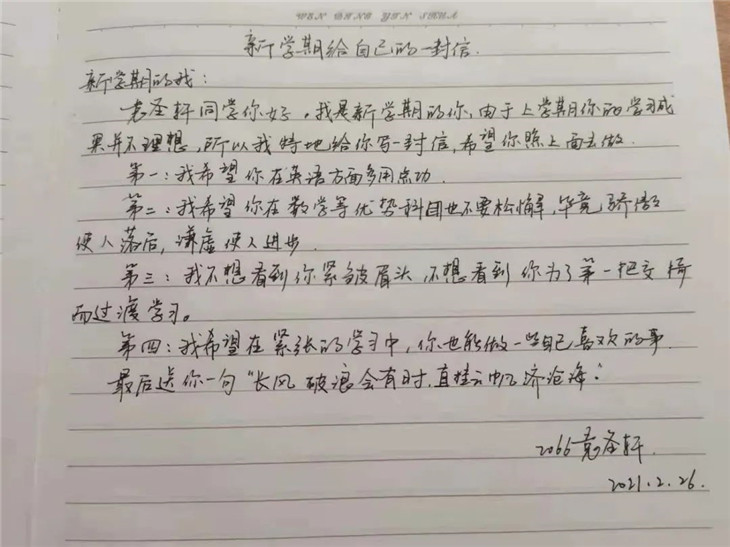 WEN DING YIN SHUA
新学期给自己的一封信.
新学期的我:
袁圣轩同学你好,我是新学期的你,由于上学期你的学习成
果并不理想,所以我特地给你写一封信,希望你照上面去做.
第一:我希望你在英语方面多用点功.
第二:我希望你在数学等优势科目也不要松懈,毕竟骄傲
使人落后,谦虚使人进步.
第三:我不想看到你紧皱眉头,不想看到你为了第一把交椅
而过渡学习。
第四:我希望在紧张的学习中,你也能做一些自己喜欢的事.
最后送你一句“长风破浪会有时,直挂云帆济沧海.”
2066袁圣轩.
2021.2.26.